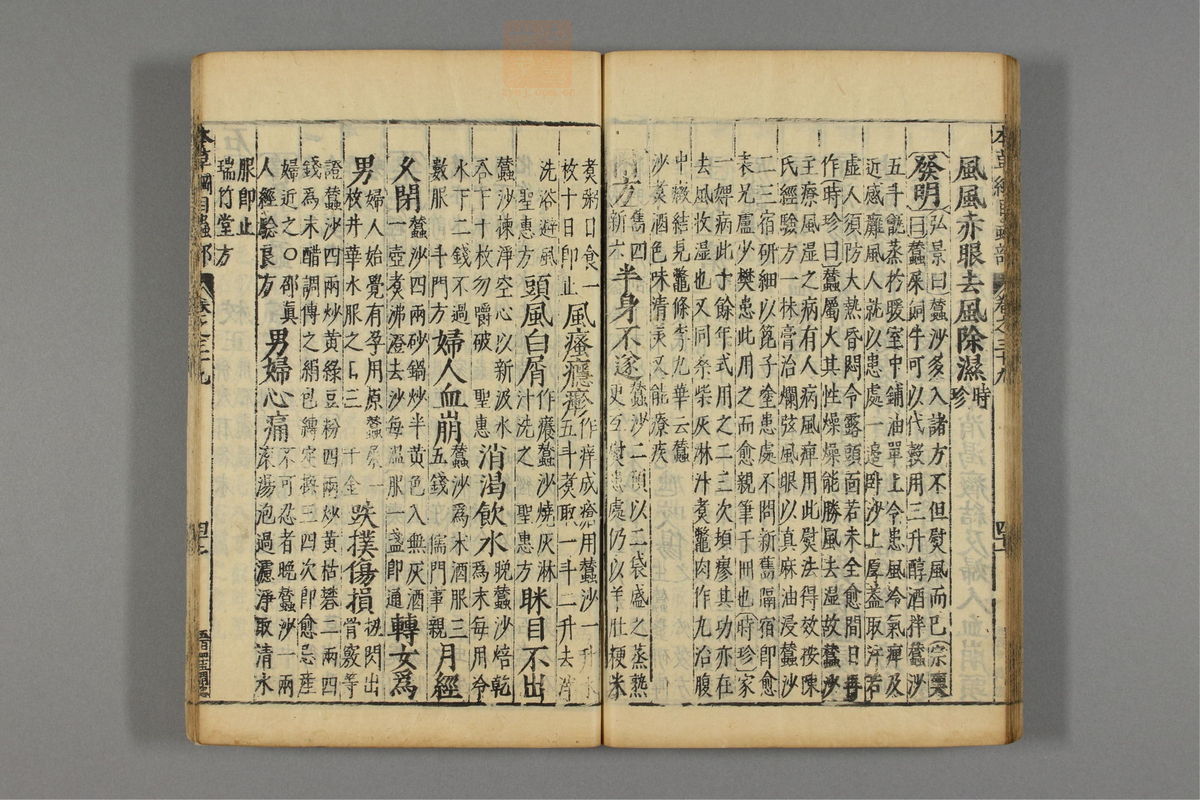 風風赤眼去風除濕時珍
發明弘景曰蠶沙多入諸方不但熨風而已宗奭
曰蠶屎飼牛可以代穀用三升醇酒拌蠶沙
五斗甑蒸於暖室中鋪油單上令患風冷氣痺及
近感癱風人就以患處一邊臥沙上厚蓋取汗若
虛人須防大熱昏悶令露頭面若未全愈間日再
作時珍曰蠶屬火其性燥燥能勝風去濕故蠶沙
主療風濕之病有人病風痺用此熨法得效按陳
氏經驗方一抹膏治爛弦風眼以真麻油浸蠶沙
二三宿研細以篦子塗患處不問新舊隔宿即愈
表兄盧少樊患此用之而愈親筆于冊也時珍家
一婢病此十餘年試用之二三次頓瘳其功亦在
去風收濕也又同柰柴灰淋汁煮鱉肉作丸治腹
中癥結見鱉條李九華云蠶
沙煮酒色味清美又能療疾
附方舊四新六半身不遂蠶沙二碩以二袋盛之蒸熱更互熨患處仍以羊肚粳米
煮粥日食一枚十日即止風瘙癮疹作痒成瘡用蠶沙一升水五斗煮取一斗二升去滓
洗浴避風聖惠方頭風白屑作癢蠶沙燒灰淋汁洗之聖惠方眯目不出
蠶沙揀淨空心以新汲水吞下十枚勿嚼破聖惠消渴飲水晚蠶沙焙乾為末每用冷
水下二錢不過數服斗門方婦人血崩蠶沙為末酒服三五錢儒門事親月經
久閉蠶沙四兩砂鍋炒半黃色入無灰酒一壺煮沸澄去沙每溫服一盞即通轉女為
男婦人始覺有孕用原蠶屎一枚井華水服之日三千金跌撲傷損扭閃出骨竅等
證蠶沙四兩炒黃綠豆粉四兩炒黃枯礬二兩四錢為末醋調傅之絹包縛定換三四次即愈忌產
婦近之○邵真人經驗良方男婦心痛不可忍者晚蠶沙一兩滾湯泡過濾淨取清水
服即止瑞竹堂方
本草綱目蟲部 卷之三十九